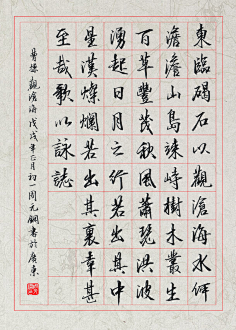 東臨碣石以觀滄海水何
澹澹山島竦峙樹木叢生
百草豐茂秋風蕭瑟洪波
湧起日月之行若出其中
星漢燦爛若出其裏幸甚
至哉歌以詠誌
曹操觀滄海戊戌年正月初一周元鋼書於廣東